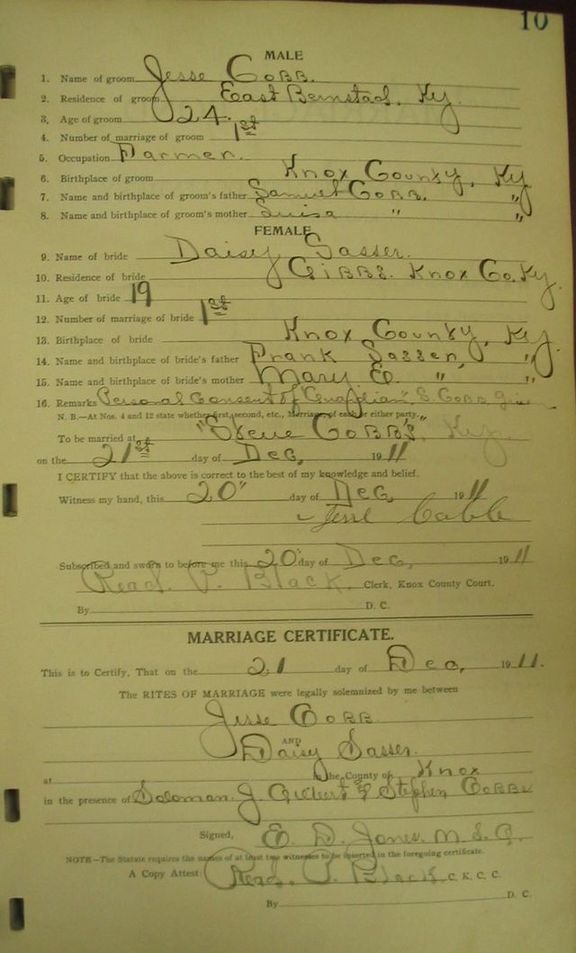 10
MALE
1. Name of groom Jesse Cobb.
2. Residence of groom East Bernstad, Ky.
3, Age of groom 24.
4. Number of marriage of groom 1st
5. Occupation Farmer.
6. Birthplace of groom Knox County, Ky
7. Name and birthplace of groom's father Samuel Cobb. "
8. Name and birthplace of groom's mother Luisa " "
FEMALE
9. Name of bride Daisy Sasser.
10. Residence of bride Gibbs. Knox Co. Ky.
11. Age of bride 19
12. Number of marriage of bride 1st
13. Birthplace of bride Knox County, Ky.
14. Name and birthplace of bride's father Frank Sasser, "
15. Name and birthplace of bride's mother Mary E. " "
16. Remarks Personal Consent of "Guardian" S. Cobb
N. B.—At Nos. 4 and 12 state whether first, second, etc., Marriage of each or either party."
To be married at "Steve Cobb's, Ky
on the 21st day of Dec, 1911
I CERTIFY that the above is correct to the best of my knowledge and belief.
Witness my hand, this 20" day of Dec 1911
Subscribed and sworn to before me this 20" day of Dec, 1911
Read. P. Black, Clerk, Knox County Court.
By D. C.
MARRIAGE CERTIFICATE.
This is to Certify, That on the 21 day of Dec, 1911.
The RITES OF MARRIAGE were legally solemnized by me between
Jesse Cobb
AND
Daisy Sasser.
at the County of Knox
in the presence of Soloman. J. Gilbert & Stephen Cobbs
Signed, E. D. Jones. M. S. G.
NOTE—The Statute requires the names of at least two witnesses to be inserted in the foregoing certificate.
A Copy Attest: Read. P. Black C. K. C. C.
By D. C.